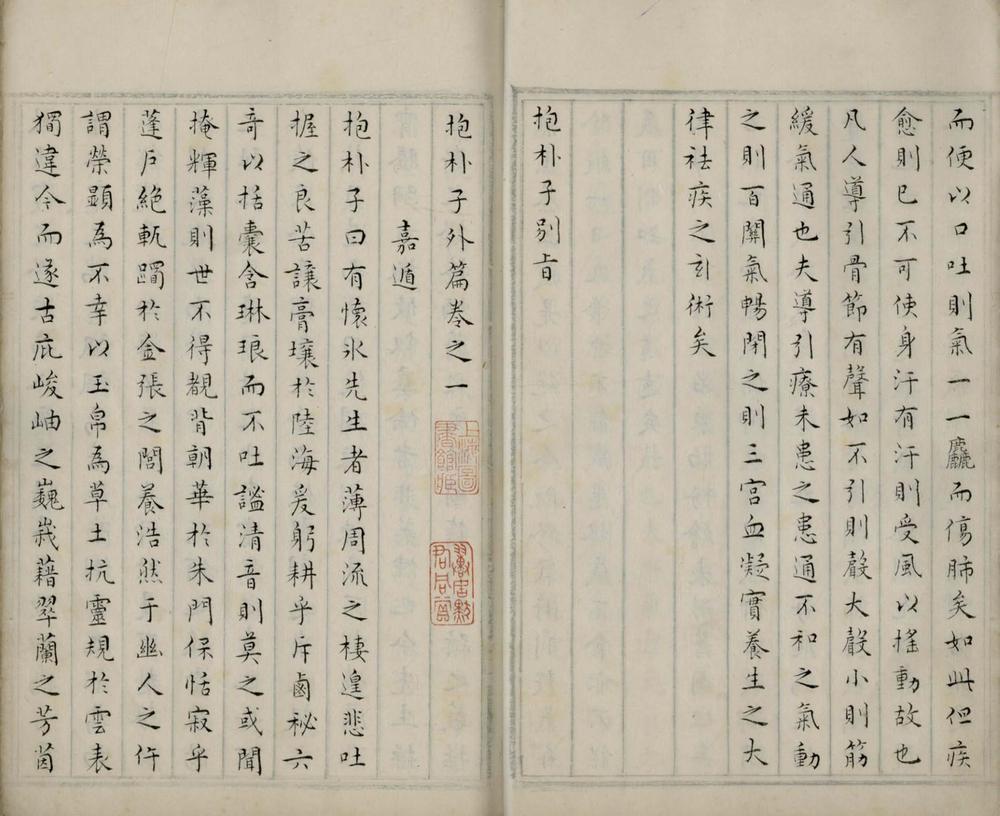 而便以口吐則氣一一麤而傷肺矣如此但疾
愈則已不可使身汗有汗則受風以搖動故也
凡人導引骨節有聲如不引則聲大聲小則筋
緩氣通也夫導引療未患之患通不和之氣動
之則百關氣暢閉之則三宮血凝實養生之大
律祛疾之玄術矣
抱朴子别旨
抱朴子外篇卷之一
嘉遁
抱朴子曰有懷氷先生者薄周流之棲遑悲吐
握之良苦讓膏壤於陸海爰躬耕乎斥鹵袐六
奇以括囊含琳琅而不吐謐清音則莫之或聞
掩輝藻則世不得覩背朝華於朱門保恬寂乎
蓬戶絶軌躅於金張之閭養浩然于幽人之仵
謂榮顯為不幸以玉帛為草土抗靈規於雲表
獨違今而遂古庇峻岫之巍峩藉翠蘭之芳茵
上海圖
書館藏